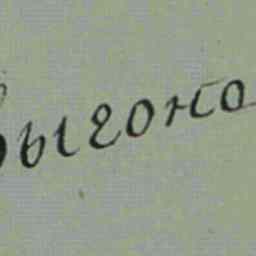 выгона